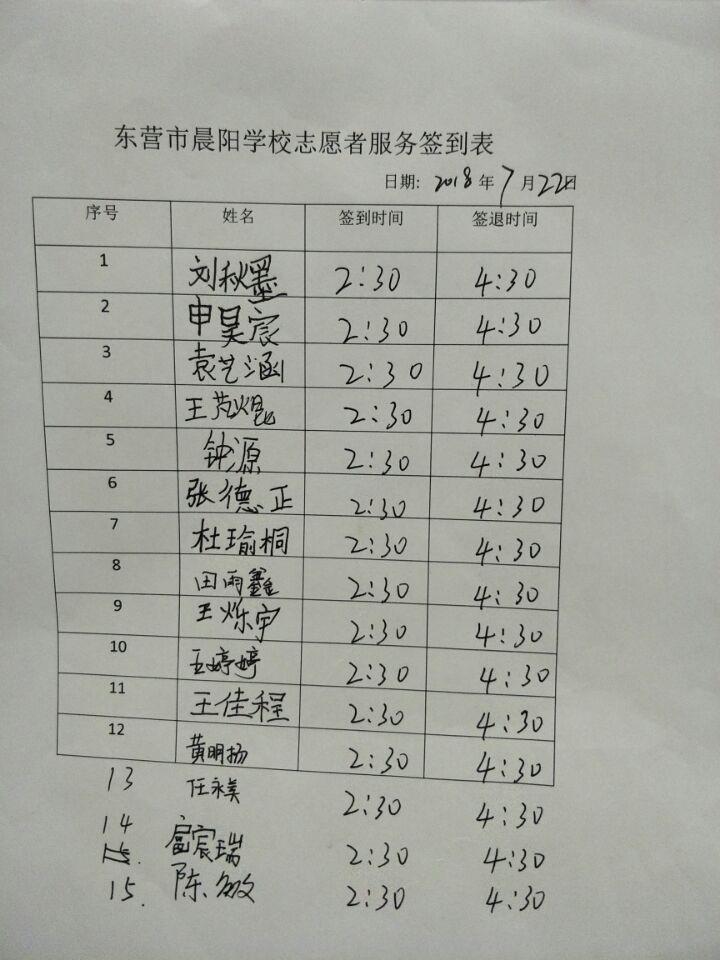 东营市晨阳学校志愿者服务签到表
日期: 2018 年 7 月 22日
序号 姓名 签到时间 签退时间
1 刘秋墨 2:30 4:30
2 申昊宸 2:30 4:30
3 袁艺涵 2:30 4:30
4 王艺焜 2:30 4:30
5 钟源 2:30 4:30
6 张德正 2:30 4:30
7 杜瑜桐 2:30 4:30
8 田雨鑫 2:30 4:30
9 王烁宇 2:30 4:30
10 王婷婷 2:30 4:30
11 王佳程 2:30 4:30
12 黄明扬 2:30 4:30
13 任永美 2:30 4:30
14 宸瑞 2:30 4:30
15. 陈敏 2:30 4:30